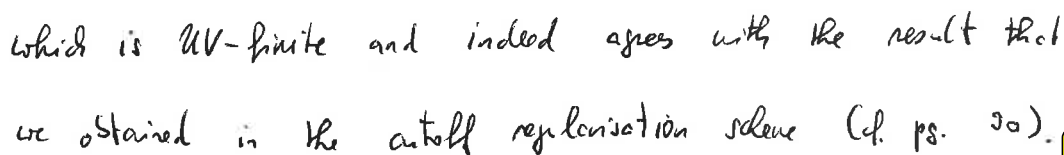 which is UV-finite and indeed agrees with the result that
we obtained in the cutoff regularisation scheme (cf. pg. 30).